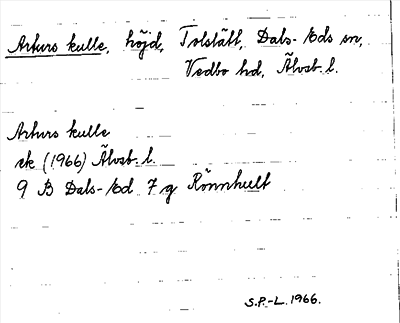 Arturs kulle, höjd, Tolstätt, Dals-Eds sn,
Vedbo hd, Älvsb. l.
Arturs kulle
ek (1966) Älvsb. l.
9 B Dals-Ed 7 g Rönnhult
S.P.-L. 1966.